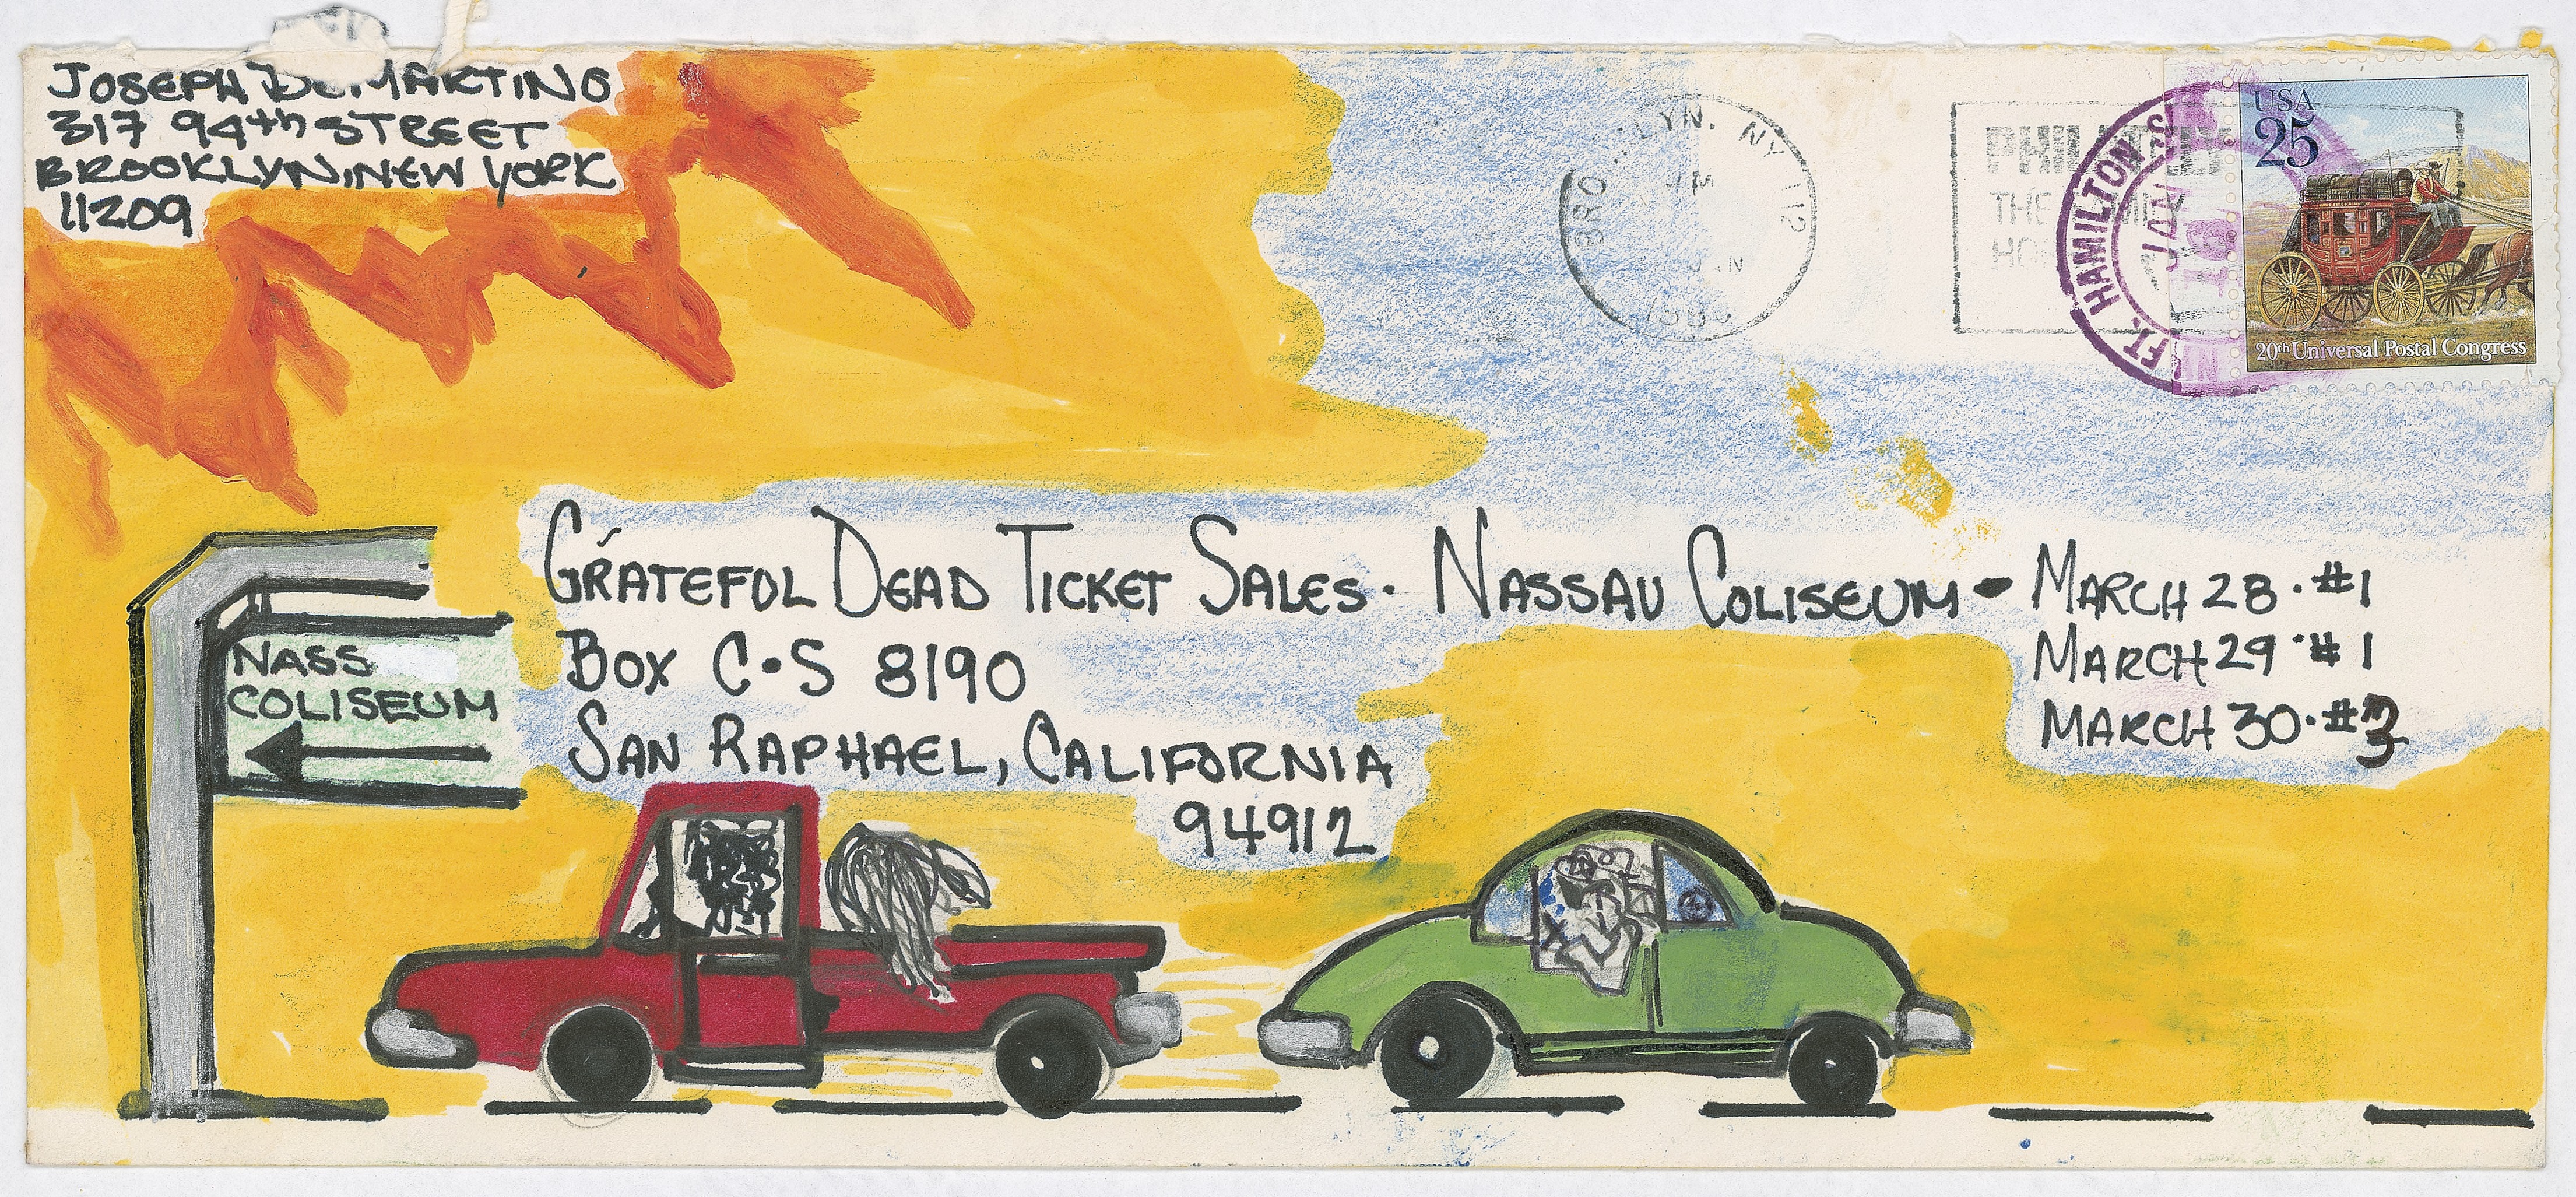 JOSEPH DeMARTINO
317 94th STREET
BROOKLYN, NEW YORK
11209
BROOKLYN, NY 112
JAN
PHILATELY
THE
FT. HAMILTON
JAN
USA
25
20th Universal Postal Congress
GRATEFUL DEAD TICKET SALES · NASSAU COLISEUM - MARCH 28 · #1
BOX C·S 8190
MARCH 29 · #1
SAN RAPHAEL, CALIFORNIA
MARCH 30 · #3
94912
NASS
COLISEUM